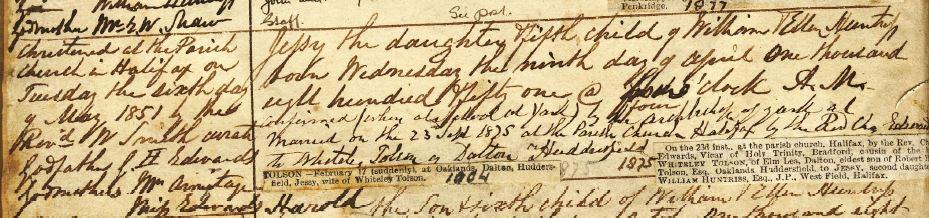 Godmother Mrs G W Shaw
Christened at the Parish
Church in Halifax on
Tuesday the sixth day
of May 1851 by the
Revd W Smith curate
Godfather J H Edwards
Godmothers Mrs Armitage
Miss Edwards
Staff.
See post.
Penkridge.
1877
Jessy the daughter & fifth child of William & Ellen Huntriss
born Wednesday the ninth day of April One thousand
eight hundred & fifty one @ four o'clock A.M.
confirmed when at school at York by the Archbishop of York
Married on the 23 Sept 1875 at the Parish Church Halifax by the Revd Chs Edwards
to Whiteley Tolson of Dalton Huddersfield
1875
TOLSON—February 17 (suddenly), at Oaklands, Dalton, Hudders-
field, Jessy, wife of Whiteley Tolson.
1904
On the 23d inst., at the parish church, Halifax, by the Rev. Ch
Edwards, Vicar of Holy Trinity, Bradford, cousin of the
WHITELEY TOLSON, of Elm Lea, Dalton, eldest son of Robert
Tolson, Esq. Oaklands Huddersfield, to JESSY, second daughte
WILLIAM HUNTRISS, Esq., J.P., West Field, Halifax.
Harold the Son & sixth child of William & Ellen Huntriss
One thousand eight